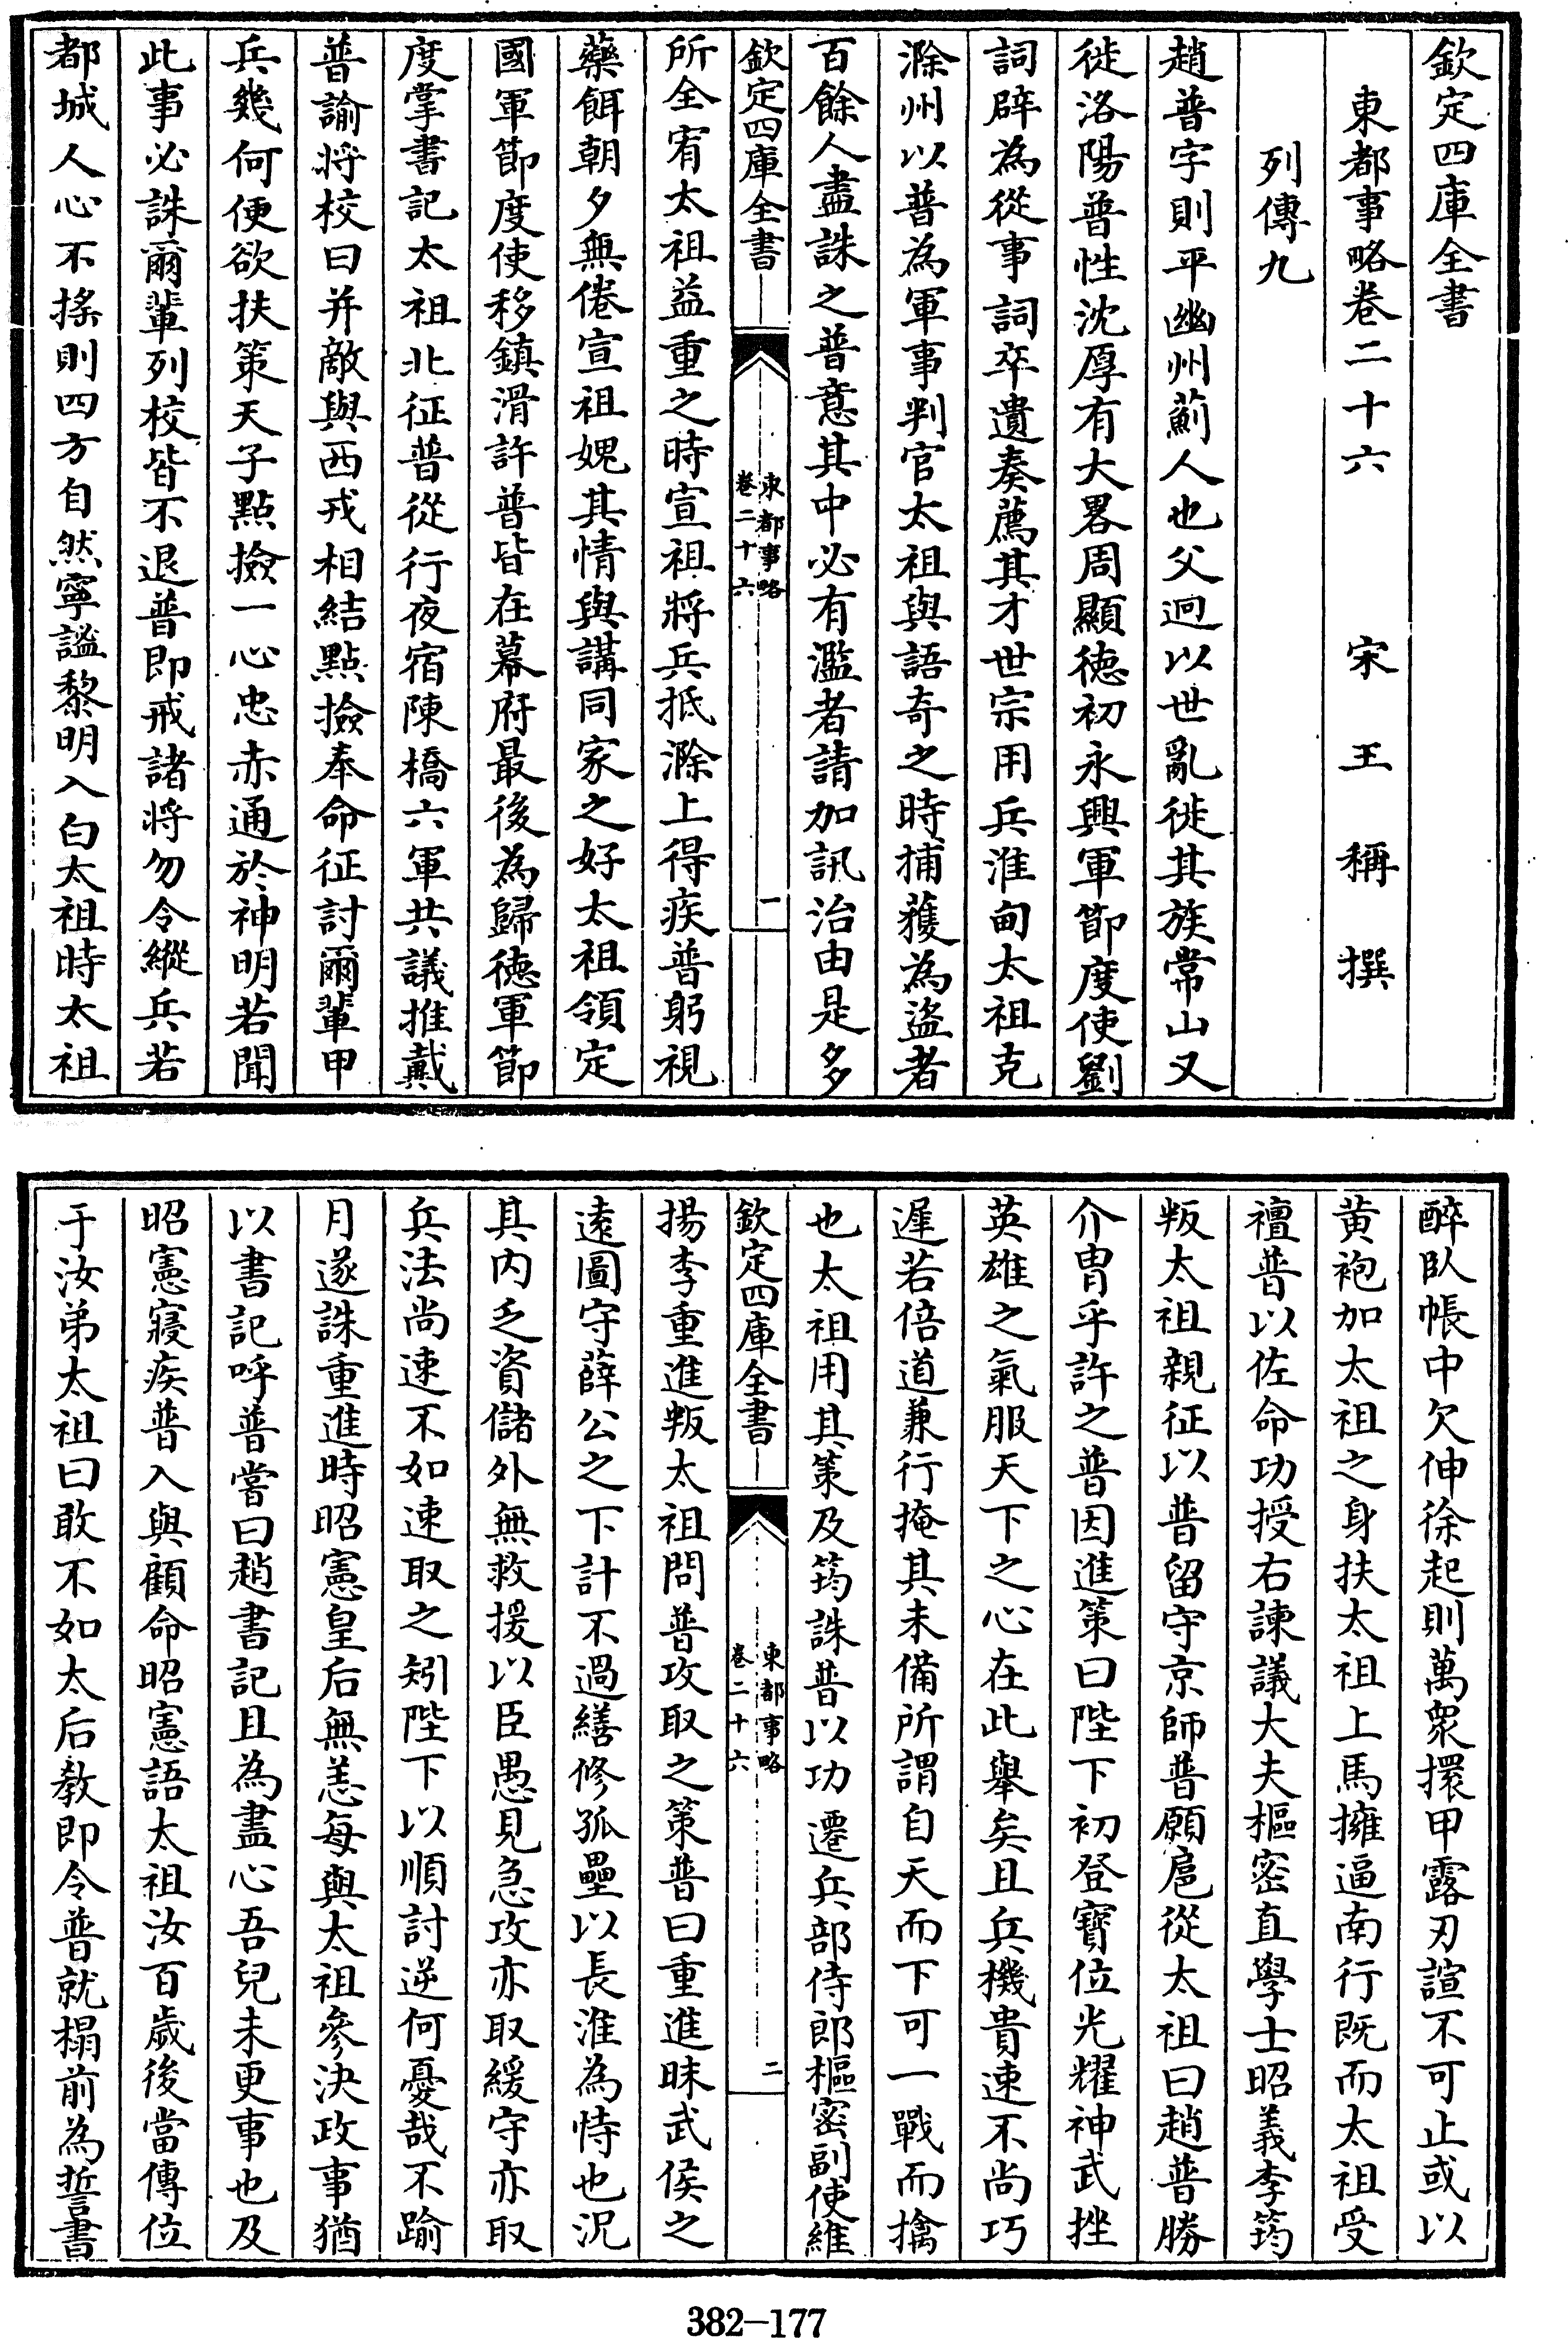 欽定四庫全書
東都事略卷二十六　宋　王　稱　撰
列傳九
趙普字則平幽州薊人也父迥以世亂徙其族常山又
徙洛陽普性沈厚有大畧周顯徳初永興軍節度使劉
詞辟為從事詞卒遺奏薦其才世宗用兵淮甸太祖克
滁州以普為軍事判官太祖與語奇之時捕獲為盗者
百餘人盡誅之普意其中必有濫者請加訊治由是多
欽定四庫全書
東都事略
卷二十六
一
所全宥太祖益重之時宣祖將兵抵滁上得疾普躬視
藥餌朝夕無倦宣祖媿其情與講同家之好太祖領定
國軍節度使移鎮滑許普皆在幕府最後為歸德軍節
度掌書記太祖北征普從行夜宿陳橋六軍共議推戴
普諭將校曰并敵與西戎相結點撿奉命征討爾輩甲
兵幾何便欲扶策天子點撿一心忠赤通於神明若聞
此事必誅爾輩列校皆不退普即戒諸將勿令縱兵若
都城人心不搖則四方自然寧謐黎明入白太祖時太祖
醉臥帳中欠伸徐起則萬衆擐甲露刃諠不可止或以
黄袍加太祖之身扶太祖上馬擁逼南行既而太祖受
禮普以佐命功授右諫議大夫樞密直學士昭義李筠
叛太祖親征以普留守京師普願扈從太祖曰趙普勝
介胄乎許之普因進策曰陛下初登寶位光耀神武挫
英雄之氣服天下之心在此舉矣且兵機貴速不尚巧
遲若倍道兼行掩其未備所謂自天而下可一戰而擒
也太祖用其策及筠誅普以功遷兵部侍郎樞密副使維
欽定四庫全書
東都事略
卷二十六
二
揚李重進叛太祖問普攻取之策普曰重進昧武侯之
逺圖守薛公之下計不過繕修孤壘以長淮為恃也況
其内乏資儲外無救援以臣愚見急攻亦取緩守亦取
兵法尚速不如速取之矧陛下以順討逆何憂哉不踰
月遂誅重進時昭憲皇后無恙每與太祖參決政事猶
以書記呼普嘗曰趙書記且為盡心吾兒未更事也及
昭憲寢疾普入與顧命昭憲語太祖汝百歲後當傳位
于汝弟太祖曰敢不如太后教即令普就榻前為誓書
382-177